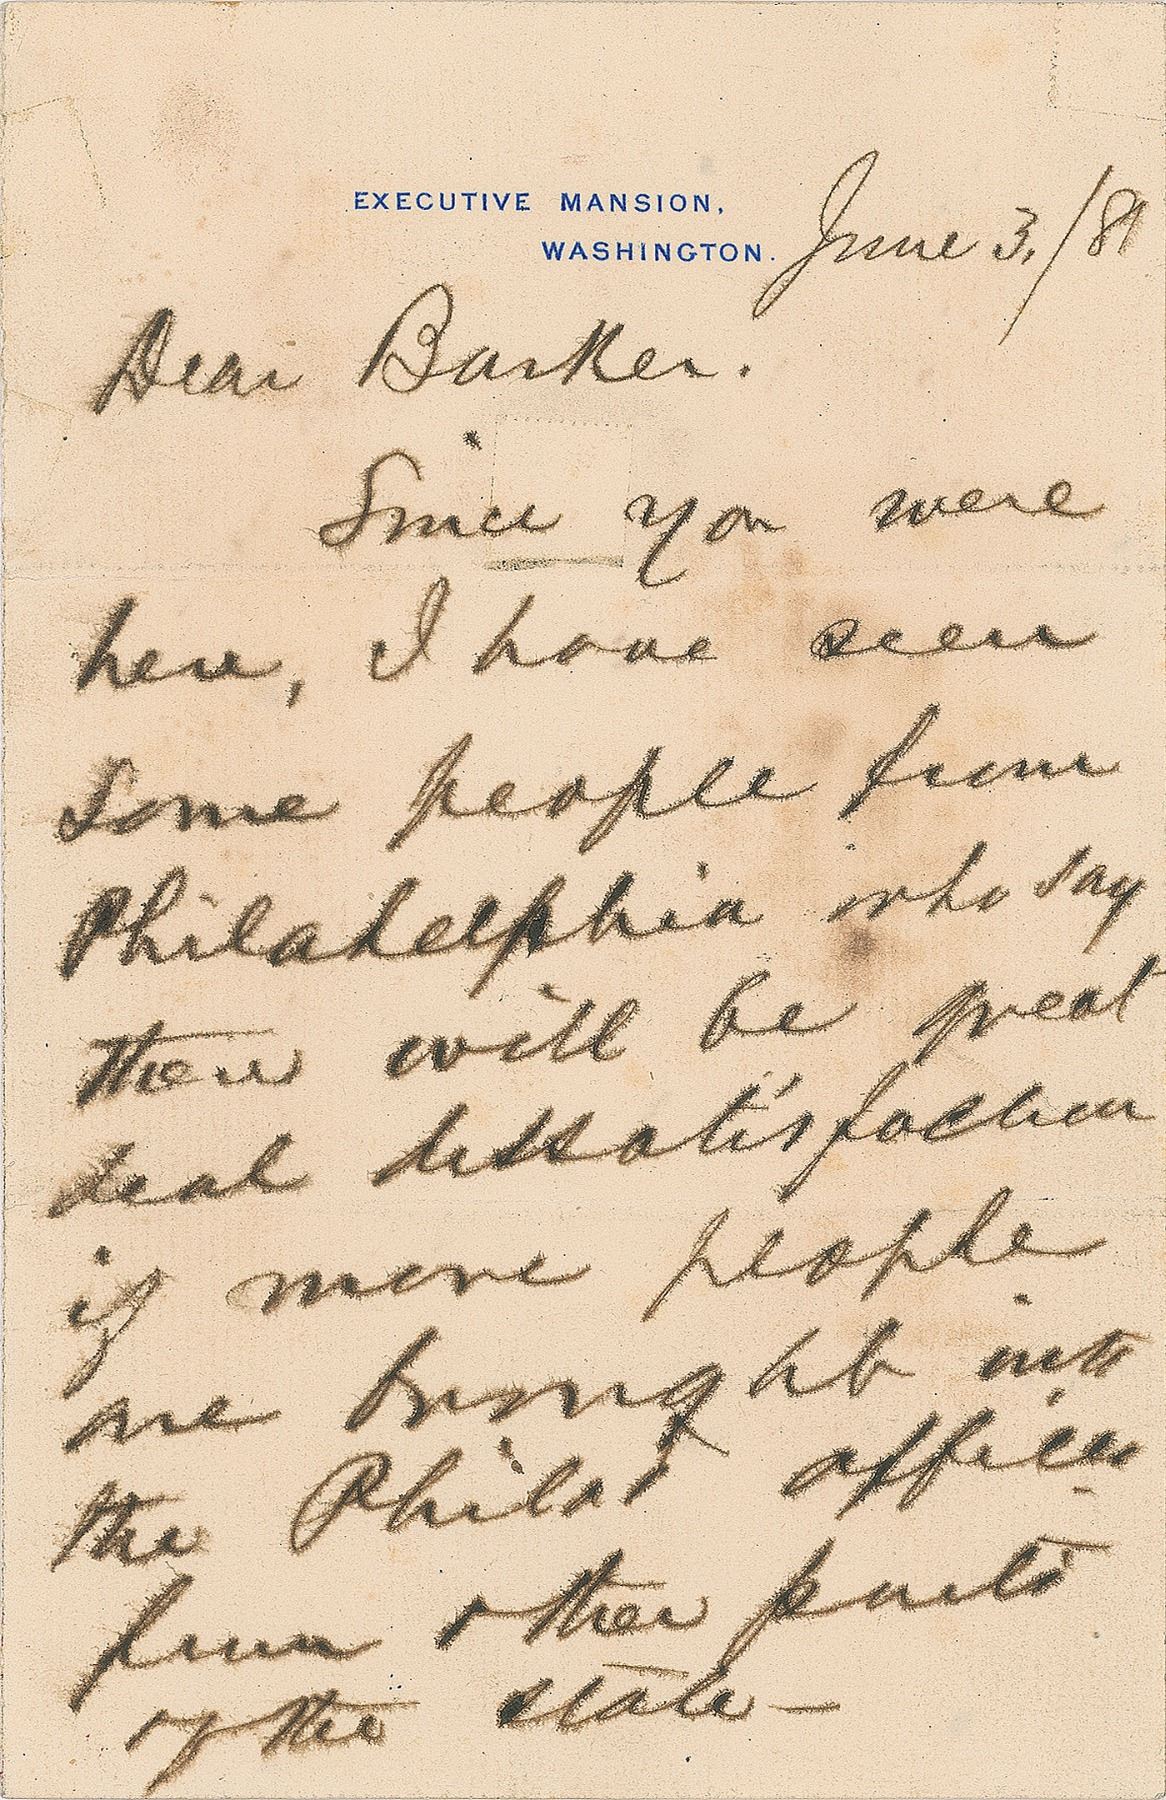 EXECUTIVE MANSION,
WASHINGTON. June 3./81
Dear Barker.
Since you were
here, I have seen
some people from
Philadelphia who say
there will be great
deal dissatisfaction
if more people
are brought into
the Phila offices
from other parts
of the state—